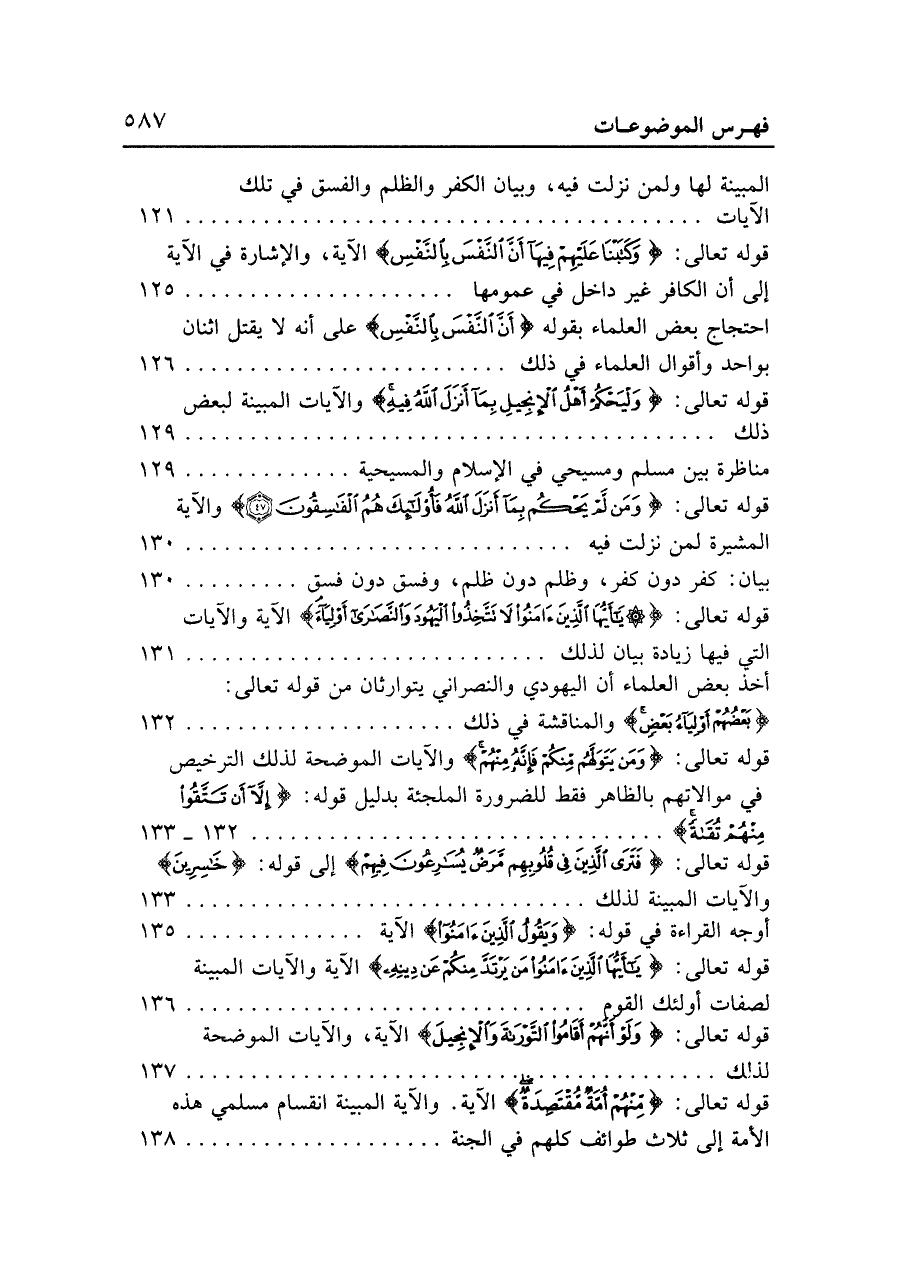 فهـرس الموضوعـات ٥٨٧
المبينة لها ولمن نزلت فيه، وبيان الكفر والظلم والفسق في تلك
الآيات . . . . . . . . . . . . . . . . . . . . ١٢١
قوله تعالى: ﴿ وَكَتَبْنَا عَلَيْهِمْ فِيهَآ أَنَّ ٱلنَّفْسَ بِٱلنَّفْسِ﴾ الآية، والإشارة في الآية
إلى أن الكافر غير داخل في عمومها . . . . . . . . . . ١٢٥
احتجاج بعض العلماء بقوله ﴿ أَنَّ ٱلنَّفْسَ بِٱلنَّفْسِ﴾ على أنه لا يقتل اثنان
بواحد وأقوال العلماء في ذلك . . . . . . . . . . ١٢٦
قوله تعالى: ﴿ وَلْيَحْكُمْ أَهْلُ ٱلْإِنجِيلِ بِمَآ أَنزَلَ ٱللَّهُ فِيهِۚ﴾ والآيات المبينة لبعض
ذلك . . . . . . . . . . . . . . . . . . . . ١٢٩
مناظرة بين مسلم ومسيحي في الإسلام والمسيحية . . . . . . . . . . ١٢٩
قوله تعالى: ﴿ وَمَن لَّمْ يَحْكُم بِمَآ أَنزَلَ ٱللَّهُ فَأُوْلَٰٓئِكَ هُمُ ٱلْفَٰسِقُونَ ٤٧﴾ والآية
المشيرة لمن نزلت فيه . . . . . . . . . . . . . . . ١٣٠
بيان: كفر دون كفر، وظلم دون ظلم، وفسق دون فسق . . . . . . . . . ١٣٠
قوله تعالى: ﴿ ۞ يَٰٓأَيُّهَا ٱلَّذِينَ ءَامَنُواْ لَا تَتَّخِذُواْ ٱلْيَهُودَ وَٱلنَّصَٰرَىٰٓ أَوْلِيَآءَۘ﴾ الآية والآيات
التي فيها زيادة بيان لذلك . . . . . . . . . . . . . . . ١٣١
أخذ بعض العلماء أن اليهودي والنصراني يتوارثان من قوله تعالى:
﴿ بَعْضُهُمْ أَوْلِيَآءُ بَعْضٍۚ﴾ والمناقشة في ذلك . . . . . . . . . . ١٣٢
قوله تعالى: ﴿ وَمَن يَتَوَلَّهُم مِّنكُمْ فَإِنَّهُۥ مِنْهُمْۗ﴾ والآيات الموضحة لذلك الترخيص
في موالاتهم بالظاهر فقط للضرورة الملجئة بدليل قوله: ﴿ إِلَّآ أَن تَتَّقُواْ
مِنْهُمْ تُقَىٰةًۗ﴾ . . . . . . . . . . . . . . . ١٣٢ ـ ١٣٣
قوله تعالى: ﴿ فَتَرَى ٱلَّذِينَ فِى قُلُوبِهِم مَّرَضٌ يُسَٰرِعُونَ فِيهِمْ﴾ إلى قوله: ﴿ خَٰسِرِينَ﴾
والآيات المبينة لذلك . . . . . . . . . . . . . . . ١٣٣
أوجه القراءة في قوله: ﴿ وَيَقُولُ ٱلَّذِينَ ءَامَنُوٓاْ﴾ الآية . . . . . . . . . . ١٣٥
قوله تعالى: ﴿ يَٰٓأَيُّهَا ٱلَّذِينَ ءَامَنُواْ مَن يَرْتَدَّ مِنكُمْ عَن دِينِهِۦ﴾ الآية والآيات المبينة
لصفات أولئك القوم . . . . . . . . . . . . . . . ١٣٦
قوله تعالى: ﴿ وَلَوْ أَنَّهُمْ أَقَامُواْ ٱلتَّوْرَىٰةَ وَٱلْإِنجِيلَ﴾ الآية، والآيات الموضحة
لذلك . . . . . . . . . . . . . . . . . . . . ١٣٧
قوله تعالى: ﴿ مِّنْهُمْ أُمَّةٌ مُّقْتَصِدَةٌۖ﴾ الآية. والآية المبينة انقسام مسلمي هذه
الأمة إلى ثلاث طوائف كلهم في الجنة . . . . . . . . . . ١٣٨